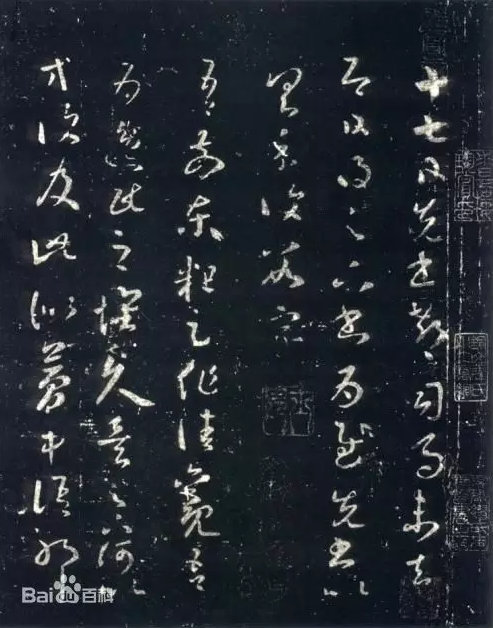 十七日先書郗司馬未去
即日得足下書為慰先書以
具示復數字
吾前東粗足作佳觀吾
為逸民之懷久矣足下何以
方復及此似夢中語耶
Bai百科